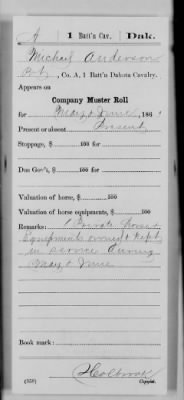 A | 1 Batt'n Cav. | Dak.
Michael Anderson
Pvt, Co. A, 1 Batt'n Dakota Cavalry.
Appears on
Company Muster Roll
for May & June, 186
Present or absent Present
Stoppage, $ 100 for
Due Gov't, $ 100 for
Valuation of horse, $ 100
Valuation of horse equipments, $ 100
Remarks: 1 Private horse
Equipments owned & kept
in service during
May & June
Book mark:
Holbrook
(358) Copyist.